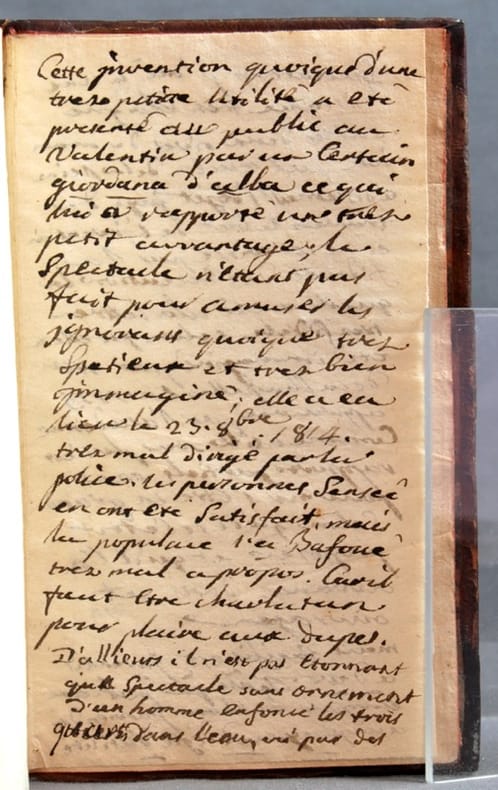 Cette jnvention quoique d'une
tres petite Utilité a eté
presenté au public au
Valentin par un Certain
giordana d'alba ce qui
lui a rapporté une tres
petit avvantage, le
Spectacle n'etant pas
fait pour amuser les
jgnorants quoique tres
Spetieux et tres bien
jmmaginé; elle a eu
lieu le 23. 8bre. 1814.
tres mal dirigé par la
police. les personnes Senseé
en ont eté Satisfait, mais
la populace l'a Bafoué
tres mal apropos. Car il
faut Etre charlatan
pour plaire aux dupes.
D'allieurs il n'est pas Etonnant
qu'un Spectacle sans ornement
D'un homme enfoncé les trois
quarts dans l'eau, vu par des